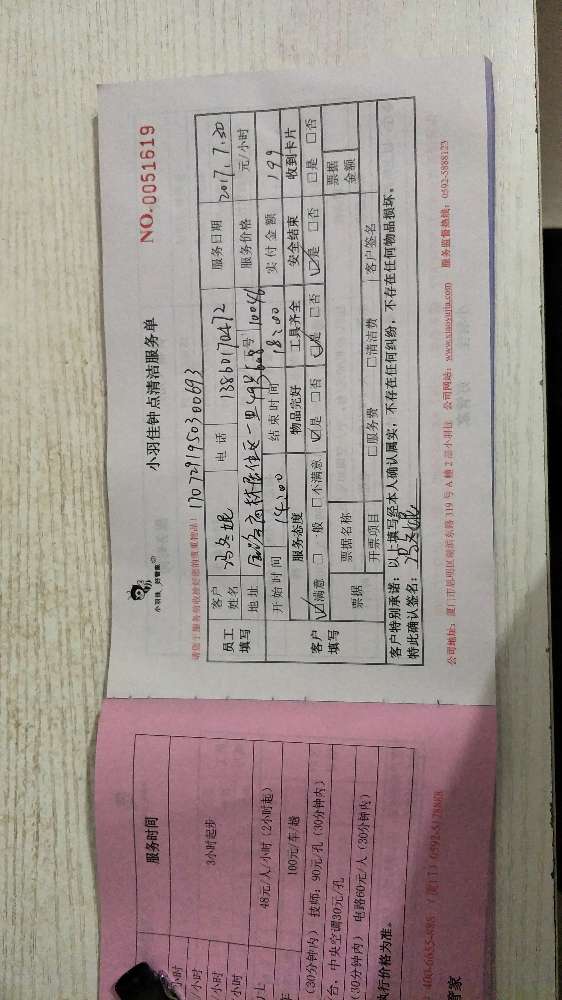 小羽佳钟点清洁服务单
NO.0051619
小羽佳 好管家
请您上服务前收捡好您的贵重物品！17072919503 00693
员工填写 客户姓名 冯冬妮 电话 13860170472 服务日期 2017.7.30
地址 居住区一里 号 1004 服务价格 元/小时
开始时间 14:00 结束时间 18:00 实付金额 199
客户填写 服务态度 物品完好 工具齐全 安全结束 收到卡片
☑满意 □一般 □不满意 ☑是 □否 ☑是 □否 ☑是 □否 □是 □否
票据 票据名称 票据金额
开票项目 □服务费 □清洁费 客户签名
客户特别承诺：以上填写经本人确认属实，不存在任何纠纷，不存在任何物品损坏。
特此确认签名：冯冬妮
公司地址：厦门市思明区湖滨东路 119 号 A 幢 2 层小羽佳 公司网站：www.xiaoyujia.com 服务监督热线：0592-5888123
服务时间
小时
小时 3小时起步
小时
小时
48元/人/小时（2小时起）
100元/车/趟
（30分钟内） 技师：90元/孔（30分钟内）
台，中央空调30元/孔
（30分钟内） 电路60元/人（30分钟内）
执行价格为准。
400-6655-888 （厦门）0592-5128888
管家